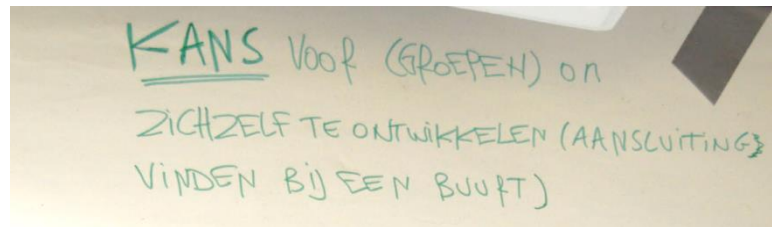 KANS VOOR (GROEPEN) om
ZICHZELF TE ONTWIKKELEN (AANSLUITING
VINDEN BIJ EEN BUURT)